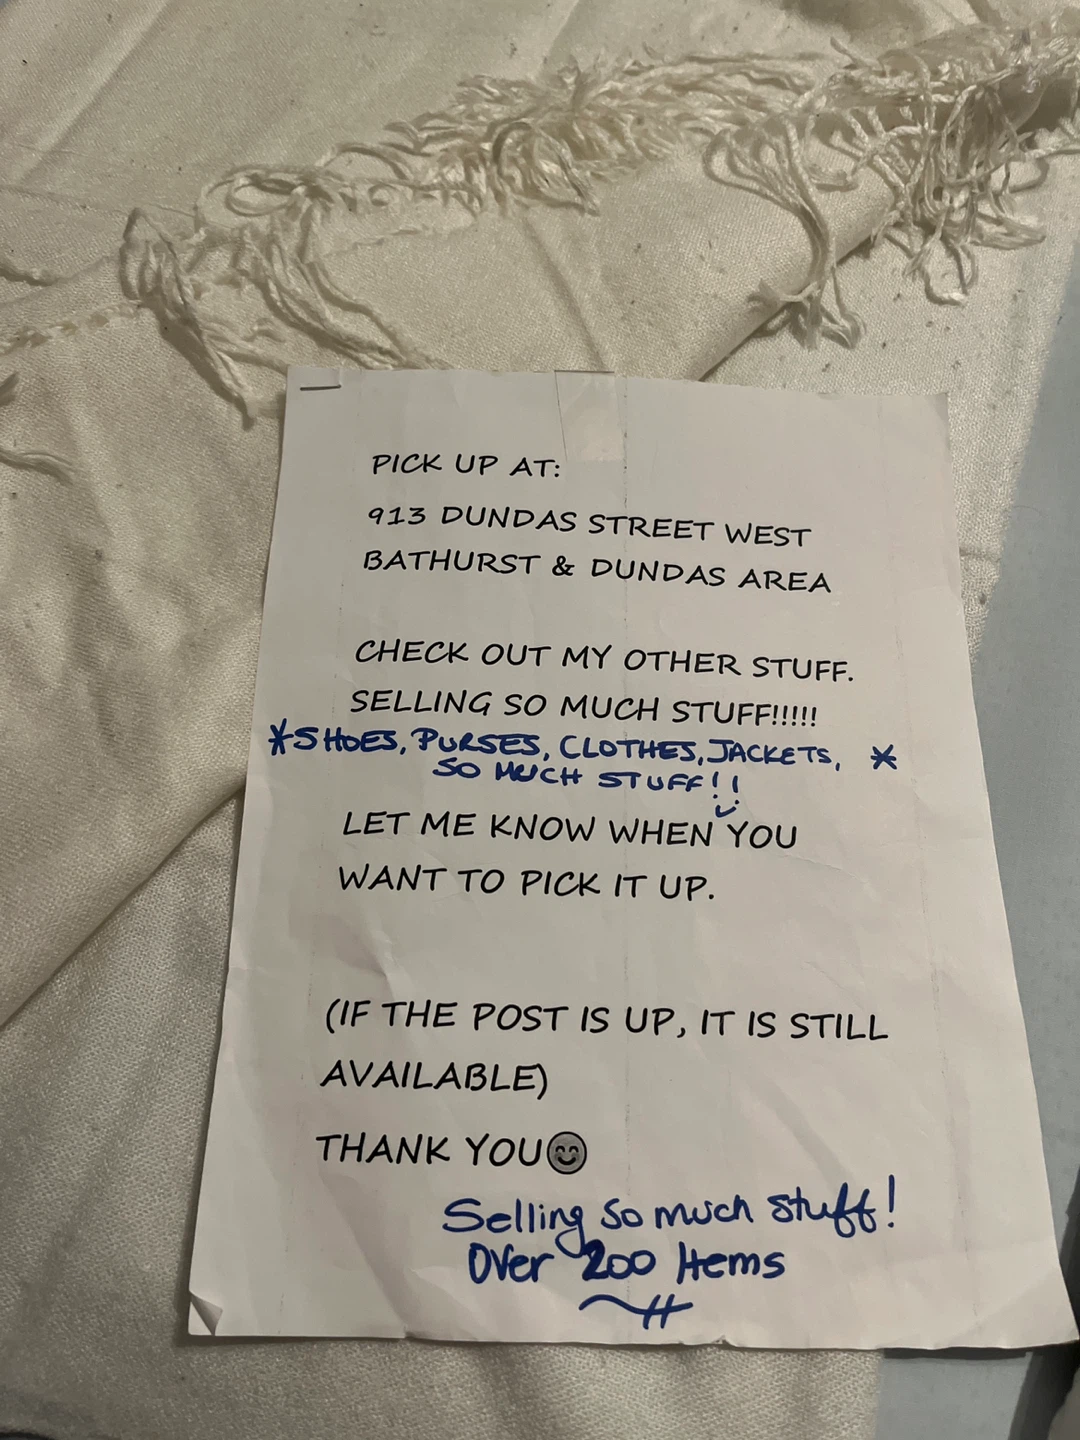 PICK UP AT:
913 DUNDAS STREET WEST
BATHURST & DUNDAS AREA
CHECK OUT MY OTHER STUFF.
SELLING SO MUCH STUFF!!!!!
*SHOES, PURSES, CLOTHES, JACKETS, *
SO MUCH STUFF!!
LET ME KNOW WHEN YOU
WANT TO PICK IT UP.
(IF THE POST IS UP, IT IS STILL
AVAILABLE)
THANK YOU😊
Selling so much stuff!
Over 200 Items